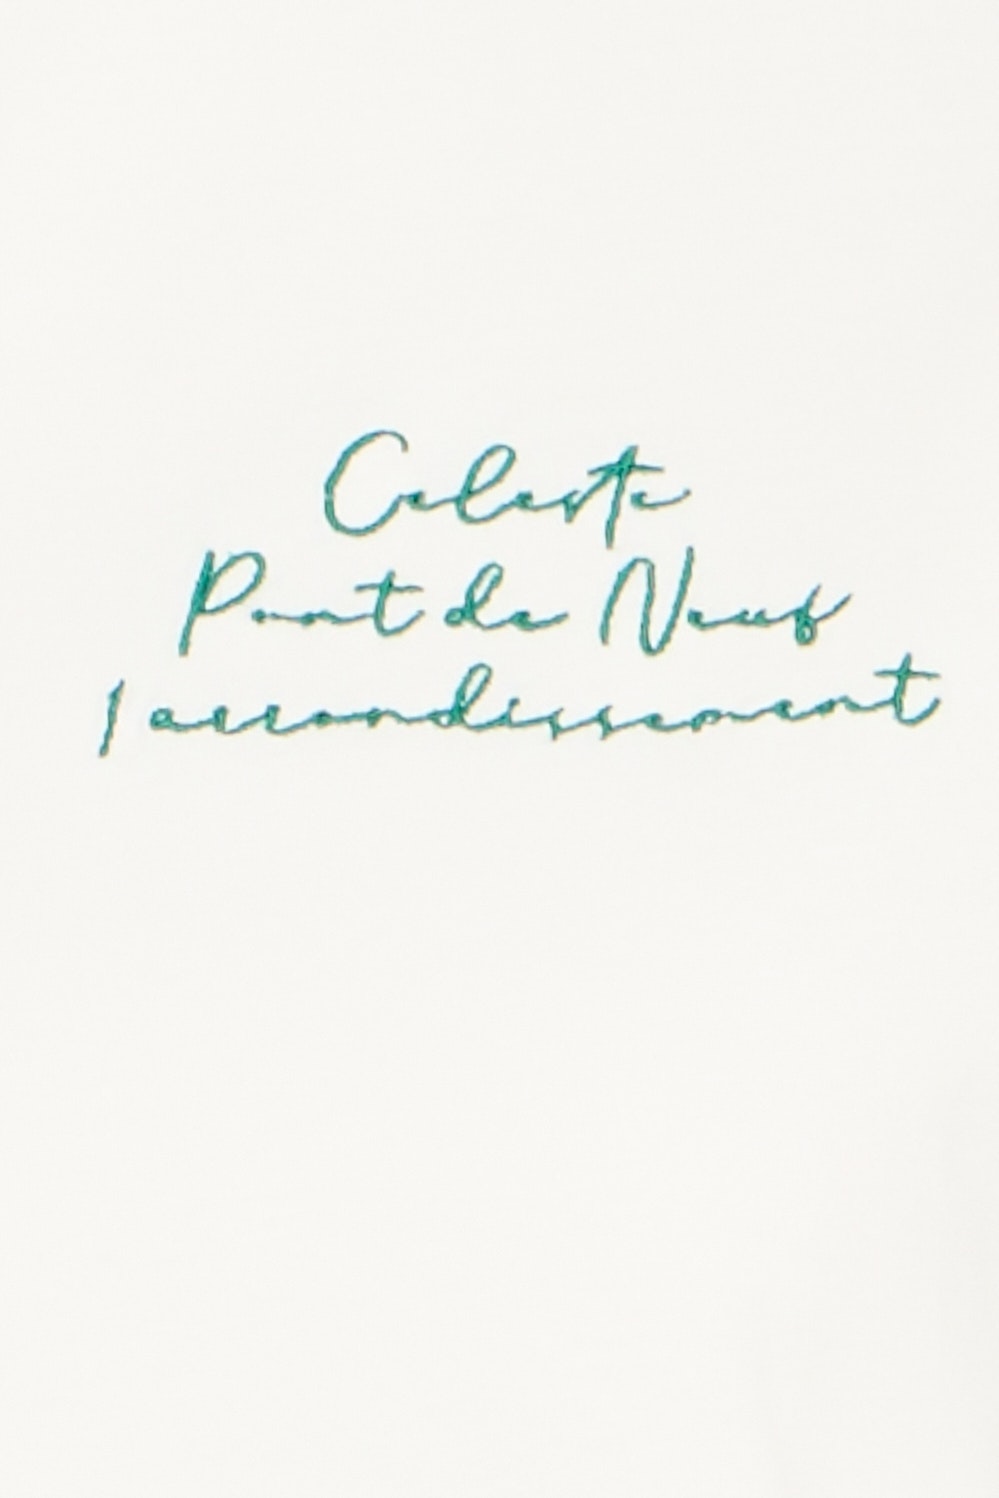 Celeste
Pont de Neuf
1 arrondissement